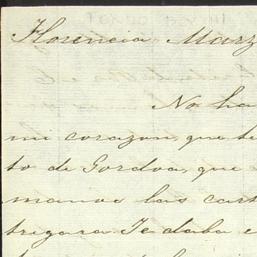 Florencia Marz
No ha
mi corazon que te
to de Gordoa, que
manos las cart
trigara. Te daba e